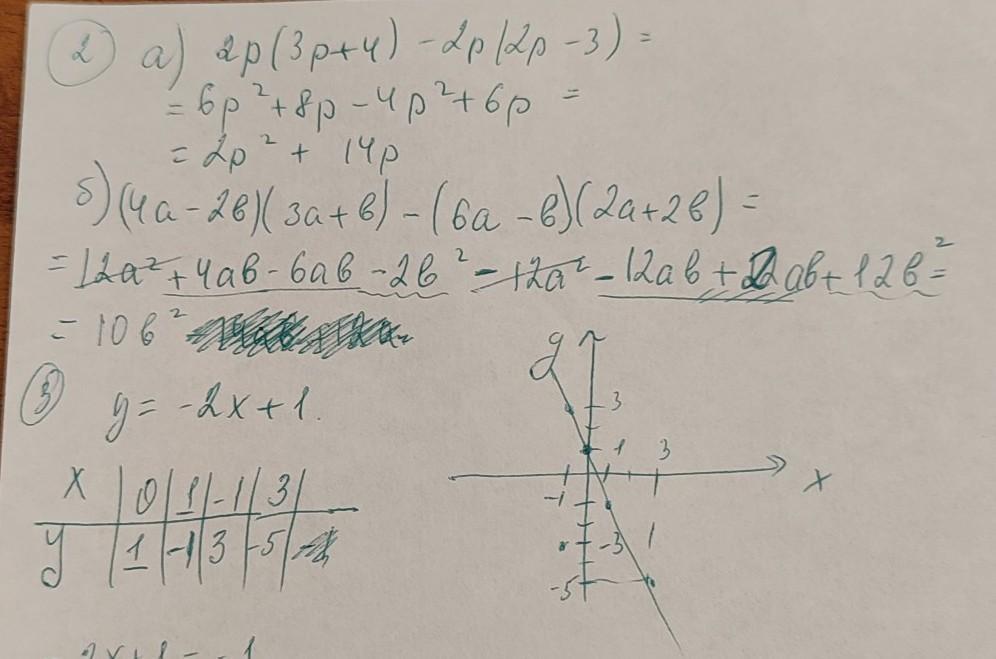 2 а) 2p(3p+4) - 2p(2p - 3) =
= 6p² + 8p - 4p² + 6p =
= 2p² + 14p
б) (4а - 2в)(3а + в) - (6а - в)(2а + 2в) =
= 12а² + 4ав - 6ав - 2в² - 12а² - 12ав + 2ав + 12в² =
= 10в²
3 y = -2x + 1.
x | 0 | 1 | -1 | 3 |
y | 1 | -1 | 3 | -5 |
y
3
1 3
x
-1
-3 1
-5